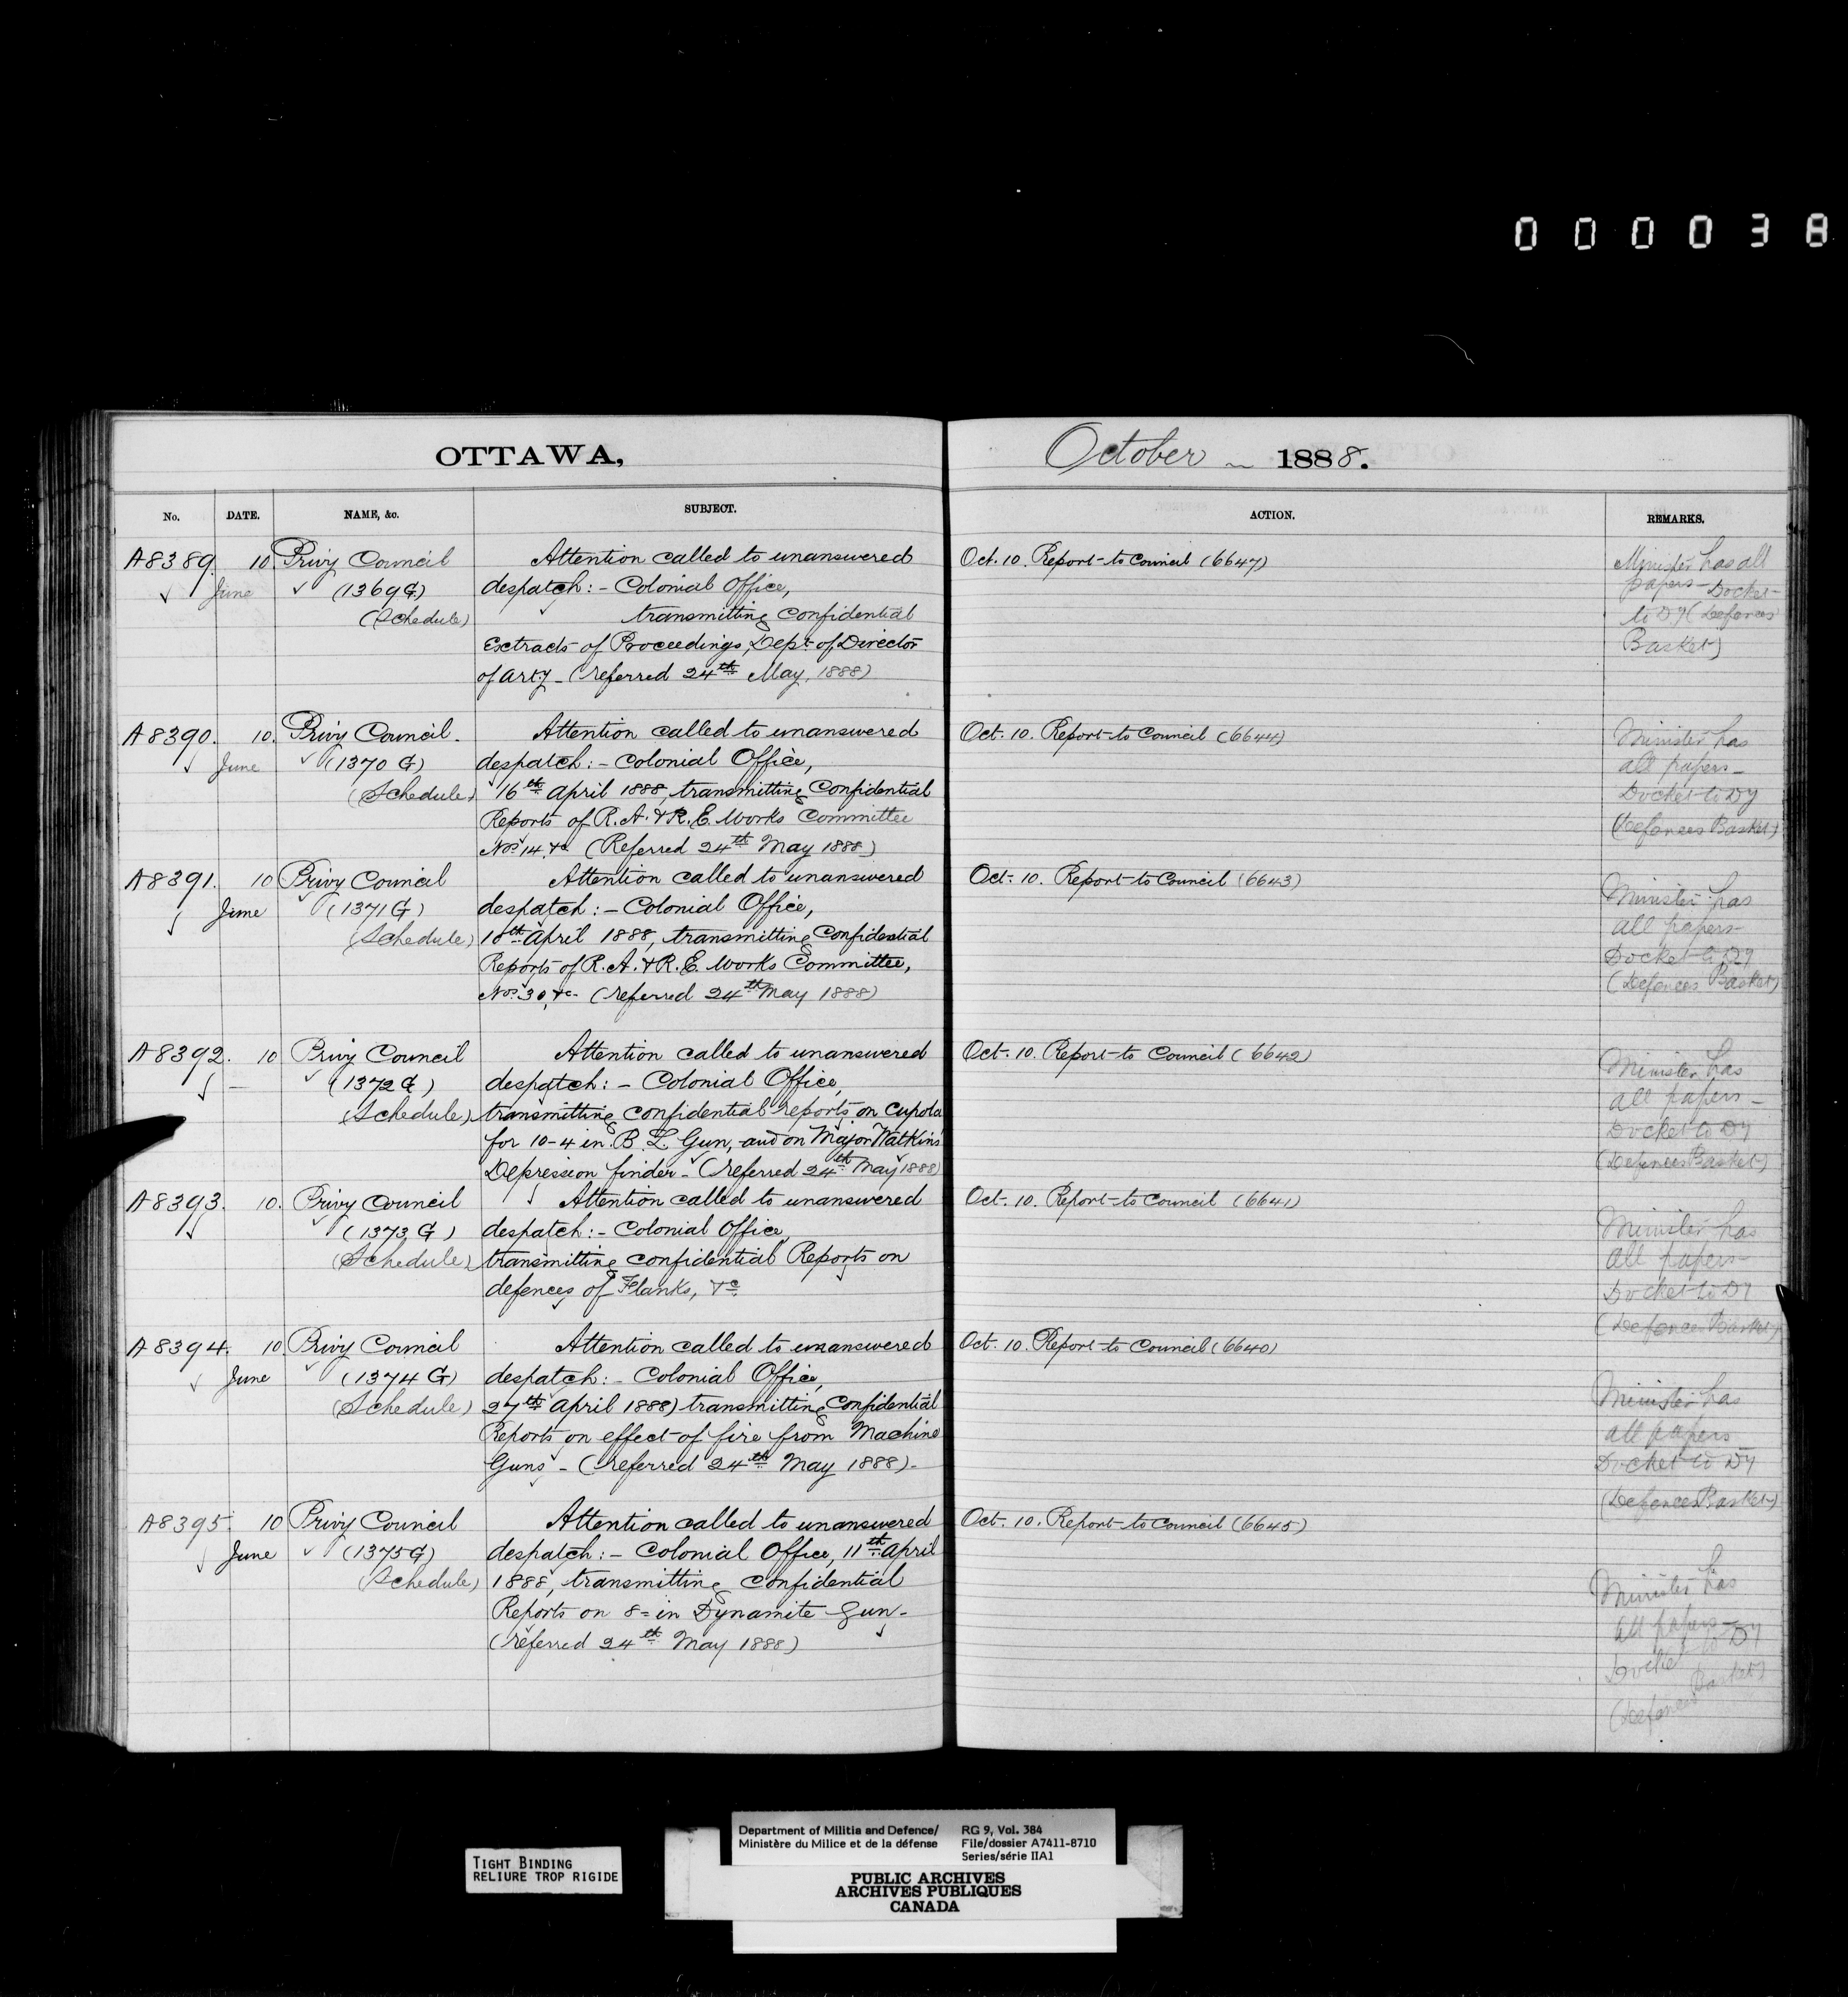 000038
OTTAWA, October 1888.
No. DATE. NAME, &c. SUBJECT. ACTION. REMARKS.
A8389. 10 Privy Council Attention called to unanswered Oct. 10. Report to Council (6647) Minister has all
June (1369G) despatch:- Colonial Office, papers- Docket
(Schedule) transmitting Confidential to DM (Defences
Extracts of Proceedings, Dept of Director Basket)
of Arty- (referred 24th May, 1888)
A8390. 10. Privy Council. Attention called to unanswered Oct. 10. Report to Council (6644) Minister has
June (1370 G) despatch:- Colonial Office, all papers-
(Schedule) 16th April 1888, transmitting Confidential Docket to DM
Reports of R.A. & R.E. Works Committee (Defences Basket)
Nos 14, &c (Referred 24th May 1888)
A8391. 10 Privy Council Attention called to unanswered Oct. 10. Report to Council (6643) Minister has
June (1371G) despatch:- Colonial Office, all papers-
(Schedule) 18th April 1888, transmitting Confidential Docket to DM
Reports of R.A. & R.E. Works Committee, (Defences Basket)
Nos 30, &c- (referred 24th May 1888)
A8392. 10 Privy Council Attention called to unanswered Oct. 10. Report to Council (6642) Minister has
- (1372G) despatch:- Colonial Office, all papers-
(Schedule) transmitting confidential reports on Cupola Docket to DM
for 10-4 in. B.L. Gun, and on Major Watkins (Defences Basket)
Depression finder- (referred 24th May 1888)
A8393. 10. Privy Council Attention called to unanswered Oct. 10. Report to Council (6641) Minister has
(1373 G) despatch:- Colonial Office, all papers-
(Schedule) transmitting confidential Reports on Docket to DM
defences of Flanks, &c. (Defences Basket)
A8394. 10. Privy Council Attention called to unanswered Oct. 10. Report to Council (6640) Minister has
June (1374 G) despatch:- Colonial Office, all papers
(Schedule) 27th April 1888) transmitting Confidential Docket to DM
Reports on effect of fire from Machine (Defences Basket)
Guns - (referred 24th May 1888)-
A8395. 10 Privy Council Attention called to unanswered Oct. 10. Report to Council (6645) Minister has
June (1375G) despatch:- Colonial Office, 11th April all papers-
(Schedule) 1888, transmitting Confidential Docket to DM
Reports on 8=in Dynamite Gun- (Defences Basket)
(referred 24th May 1888)
TIGHT BINDING
RELIURE TROP RIGIDE
Department of Militia and Defence/ RG 9, Vol. 384
Ministère du Milice et de la défense File/dossier A7411-8710
Series/série IIA1
PUBLIC ARCHIVES
ARCHIVES PUBLIQUES
CANADA